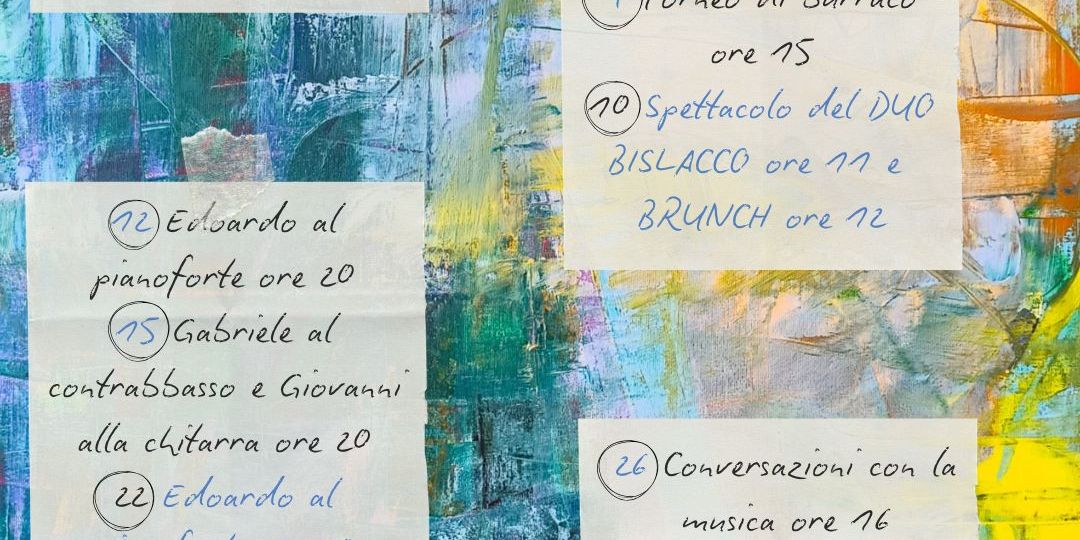 12 Edoardo al
pianoforte ore 20
15 Gabriele al
contrabbasso e Giovanni
alla chitarra ore 20
22 Edoardo al
Torneo di Burraco
ore 15
10 Spettacolo del DUO
BISLACCO ore 11 e
BRUNCH ore 12
26 Conversazioni con la
musica ore 16